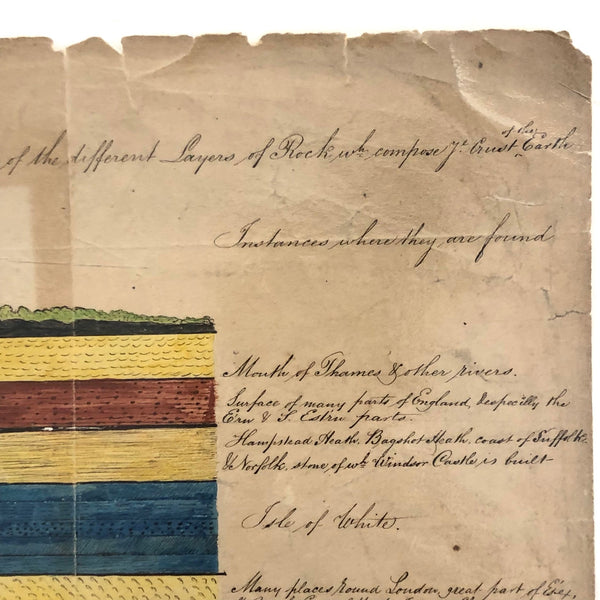 of the
of the different Layers of Rock wh compose ye Crust Earth
Instances where they are found
Mouth of Thames & other rivers.
Surface of many parts of England, & especilly the
Ern & S. Estrn parts.
Hampstead Heath. Bagshot Heath. coast of Suffolk
& Norfolk. stone of wh Windsor Castle is built
Isle of White.
Many places round London, great part of Esex,